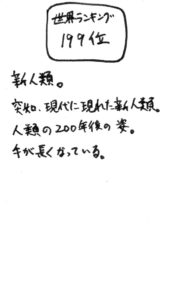 世界ランキング
199位
新人類。
突如、現代に現れた新人類。
人類の200年後の姿。
手が長くなっている。